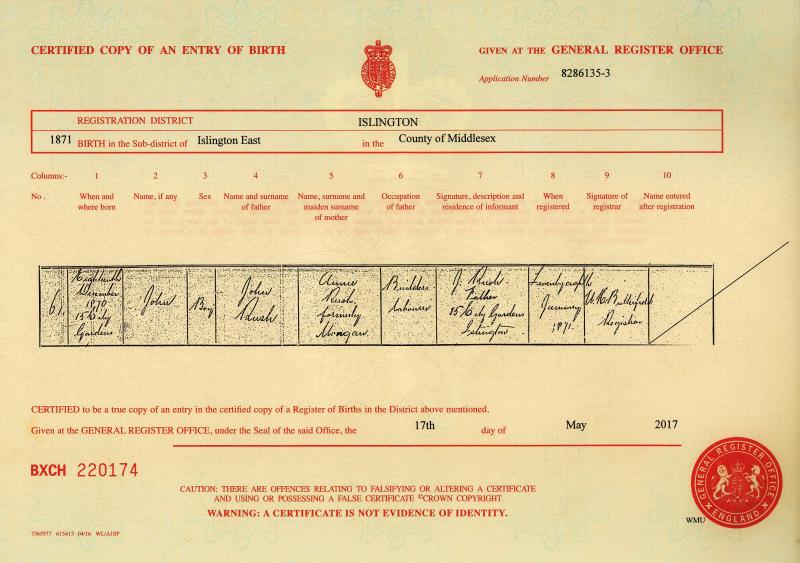 CERTIFIED COPY OF AN ENTRY OF BIRTH
GIVEN AT THE GENERAL REGISTER OFFICE
Application Number 8286135-3
REGISTRATION DISTRICT ISLINGTON
1871 BIRTH in the Sub-district of Islington East in the County of Middlesex
Columns:- 1 2 3 4 5 6 7 8 9 10
No. When and where born Name, if any Sex Name and surname of father Name, surname and maiden surname of mother Occupation of father Signature, description and residence of informant When registered Signature of registrar Name entered after registration
61 Eighteenth December 1870 15 City Gardens John Boy John Rush Annie Rush formerly Morgan Builders Labourer J. Rush Father 15 City Gardens Islington Twenty eighth January 1871. Registrar
CERTIFIED to be a true copy of an entry in the certified copy of a Register of Births in the District above mentioned.
Given at the GENERAL REGISTER OFFICE, under the Seal of the said Office, the 17th day of May 2017
BXCH 220174
CAUTION: THERE ARE OFFENCES RELATING TO FALSIFYING OR ALTERING A CERTIFICATE
AND USING OR POSSESSING A FALSE CERTIFICATE ©CROWN COPYRIGHT
WARNING: A CERTIFICATE IS NOT EVIDENCE OF IDENTITY.
GENERAL REGISTER OFFICE
ENGLAND
WMU
7365977 615413 04/16 WL/A1SP